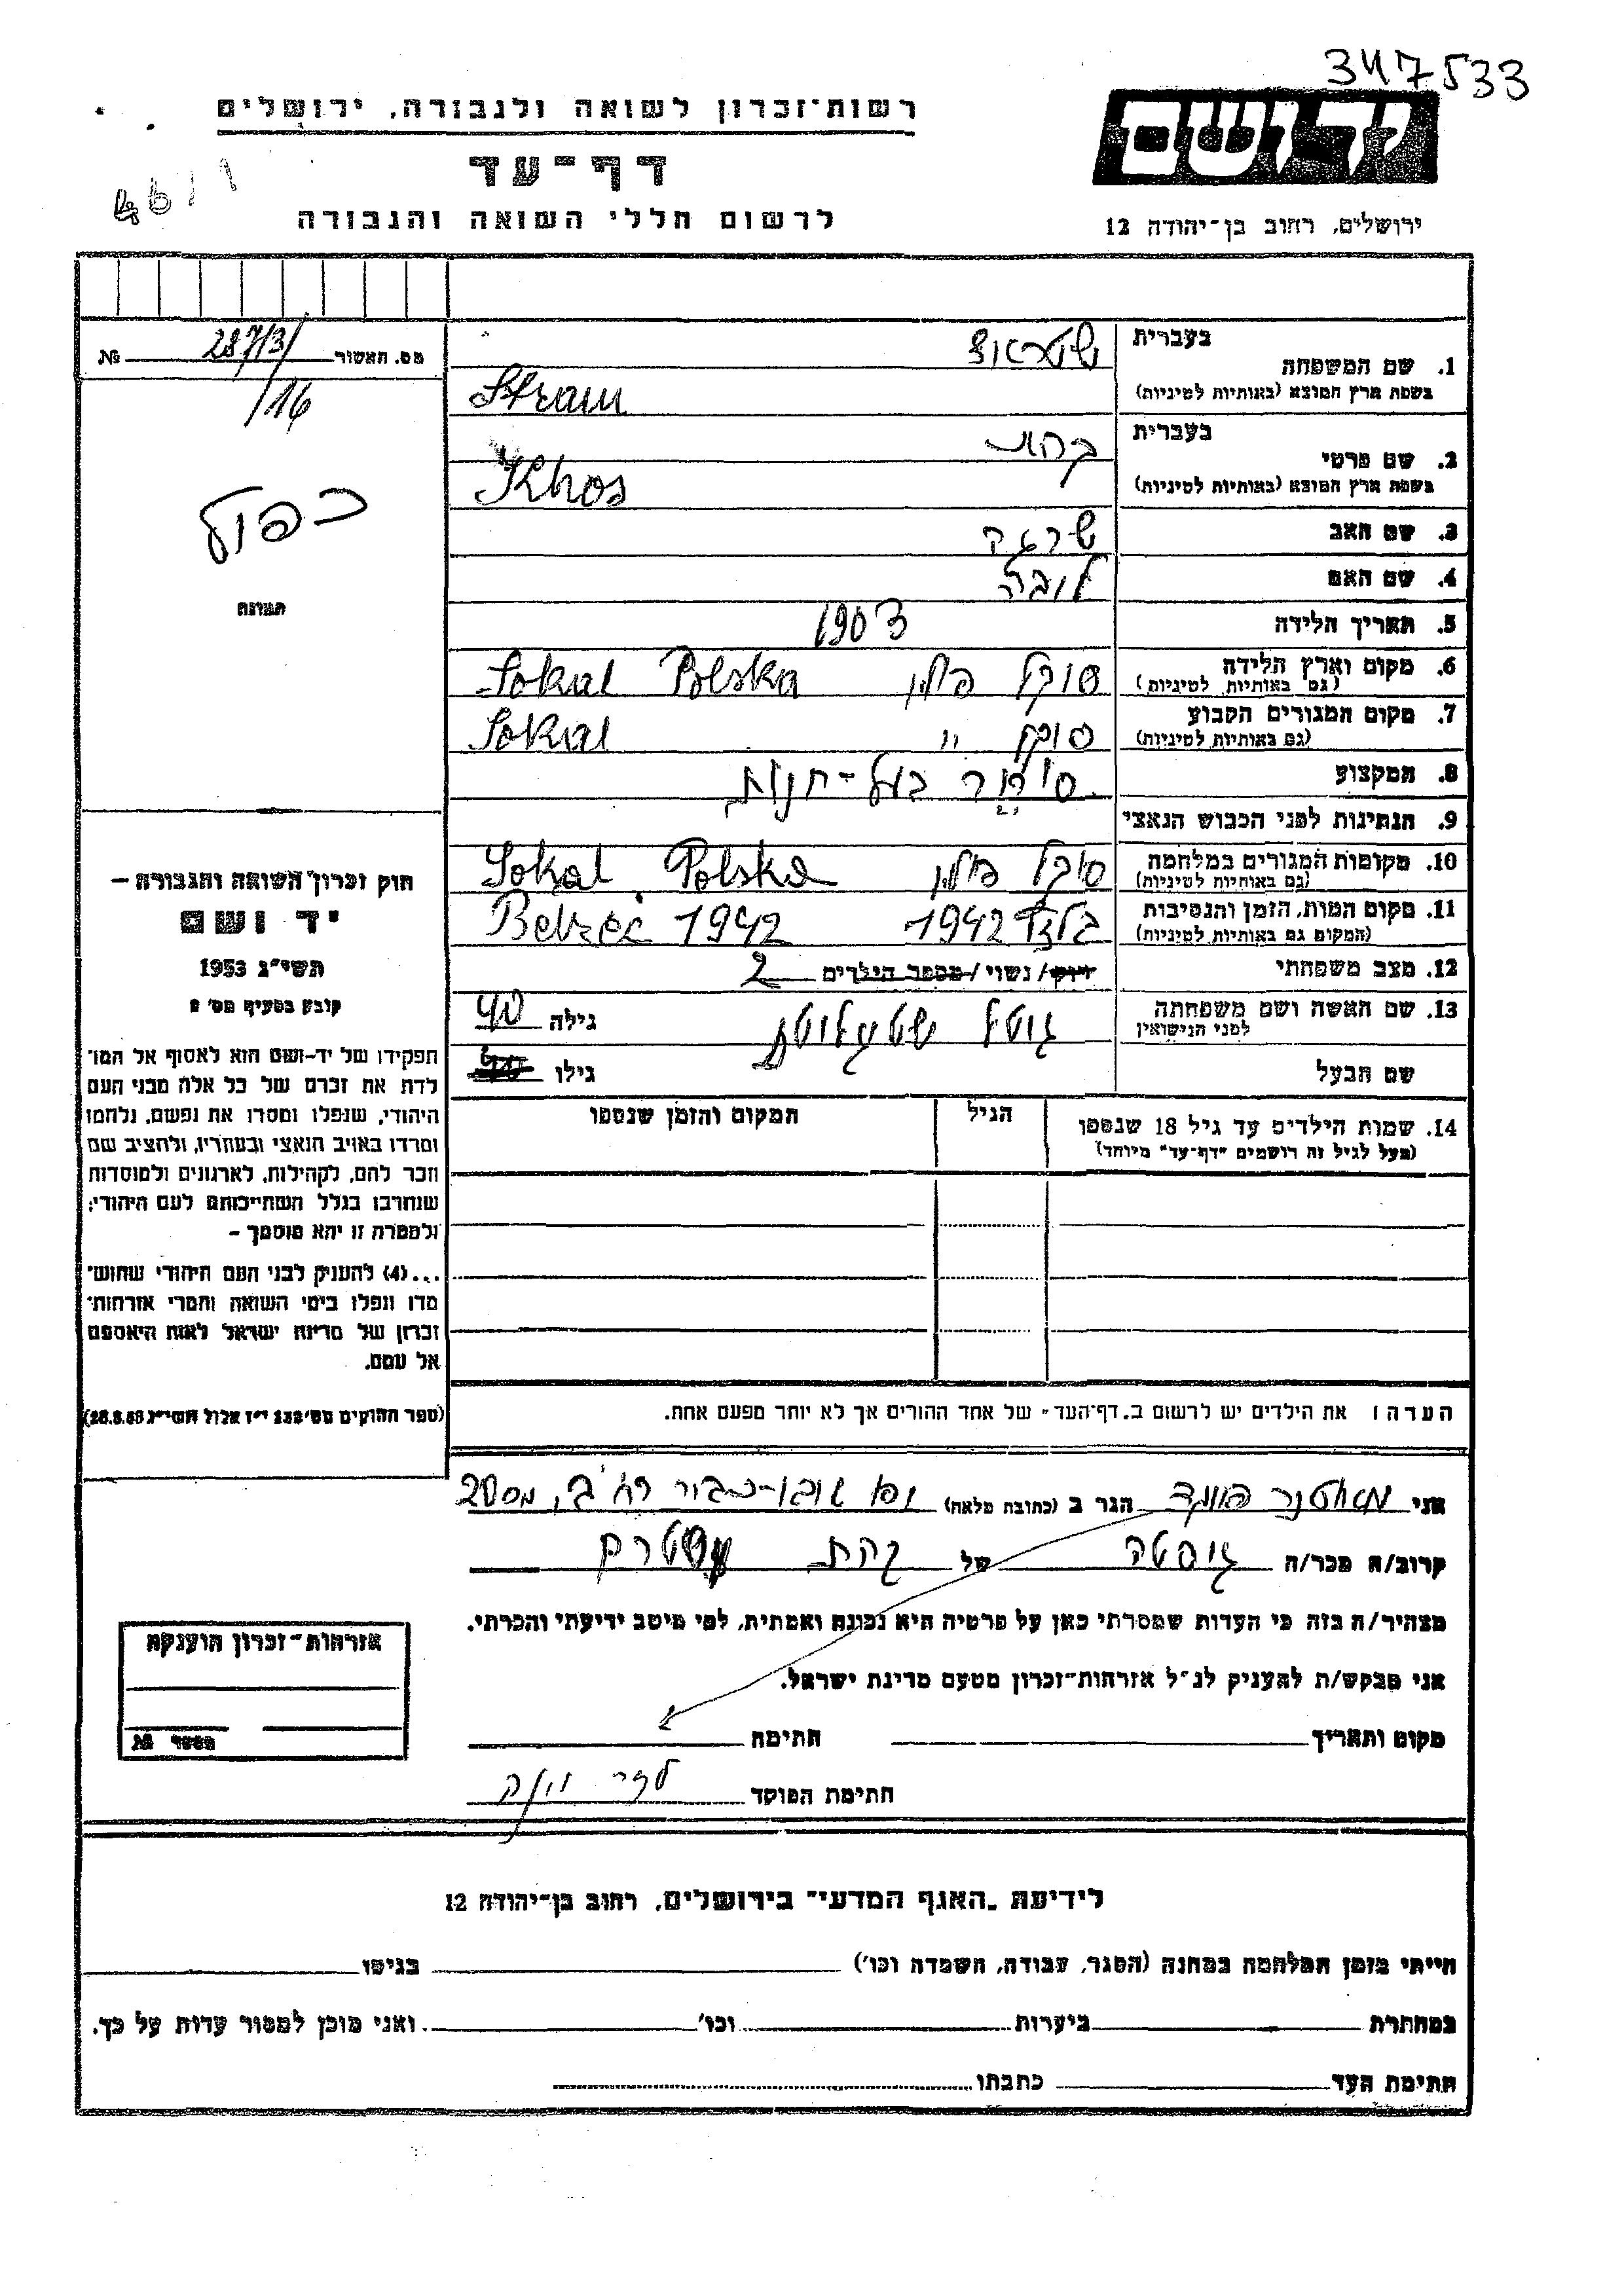 347533
רשות־זכרון לשואה ולגבורה, ירושלים
יד ושם
דף־עד
לרשום חללי השואה והגבורה
ירושלים, רחוב בן־יהודה 12
מס. תאשור 287/3/ №
/16
כפול
תמונה
בעברית
1. שם המשפחה
בשפת ארץ המוצא (באותיות לטיניות) Stram
בעברית קהת
2. שם פרטי
בשפת ארץ המוצא (באותיות לטיניות) Khos
3. שם האב שרגא
4. שם האם
5. תאריך הלידה 1903
6. מקום וארץ הלידה סוקל פולין Sokal Polska
(גם באותיות לטיניות)
7. מקום המגורים הקבוע סוקל " Sokal
(גם באותיות לטיניות)
8. המקצוע סוחר בעל-חנות
9. הנתינות לפני הכבוש הנאצי
10. מקומות המגורים במלחמה סוקל פולין Sokal Polska
(גם באותיות לטיניות)
11. מקום המות, הזמן והנסיבות בלזץ 1942 Bełzec 1942
(המקום גם באותיות לטיניות)
12. מצב משפחתי רווק/ נשוי/ מספר הילדים 2
13. שם האשה ושם משפחתה גילה 40
לפני הנישואין
שם הבעל גילו
14. שמות הילדים עד גיל 18 שנספו הגיל המקום והזמן שנספו
(מעל לגיל זה רושמים "דף־עד" מיוחד)
הערה: את הילדים יש לרשום ב„דף־העד" של אחד ההורים אך לא יותר מפעם אחת.
חוק זכרון השואה והגבורה —
יד ושם
תשי"ג 1953
קובע בסעיף מס' 2
תפקידו של יד-ושם הוא לאסוף אל המו־
לדת את זכרם של כל אלה מבני העם
היהודי, שנפלו ומסרו את נפשם, נלחמו
ומרדו באויב הנאצי ובעוזריו, ולהציב שם
וזכר להם, לקהילות, לארגונים ולמוסדות
שנחרבו בגלל השתייכותם לעם היהודי;
ולמטרה זו יהא מוסמך —
...(4) להעניק לבני העם היהודי שהוש־
מדו ונפלו בימי השואה והמרי אזרחות־
זכרון של מדינת ישראל לאות היאספם
אל עמם.
(ספר החוקים מס' 132 י"ז אלול תשי"ג 28.8.53)
אני הגר ב (כתובת מלאה)
קרוב/ה מכר/ה של קהת שטרם
מצהיר/ה בזה כי העדות שמסרתי כאן על פרטיה היא נכונה ואמתית, לפי מיטב ידיעתי והכרתי.
אני מבקש/ת להעניק לנ"ל אזרחות־זכרון מטעם מדינת ישראל.
מקום ותאריך חתימה
חתימת הפוקד
אזרחות־זכרון הוענקה
מספר №
לידיעת „האגף המדעי" בירושלים, רחוב בן־יהודה 12
הייתי בזמן המלחמה במחנה (הסגר, עבודה, השמדה וכו') בגיטו
במחתרת ביערות וכו' ואני מוכן למסור עדות על כך.
חתימת העד כתבתו